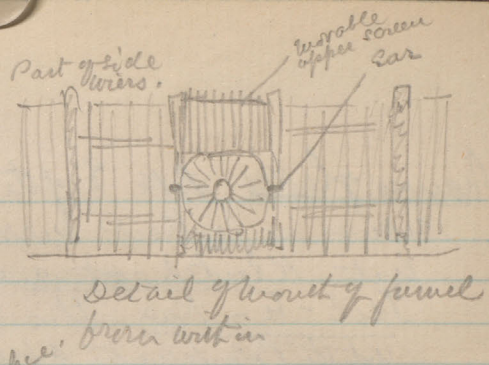 Part of side
wiers.
movable
upper screen
Ear
Detail of mouth of funnel
from within